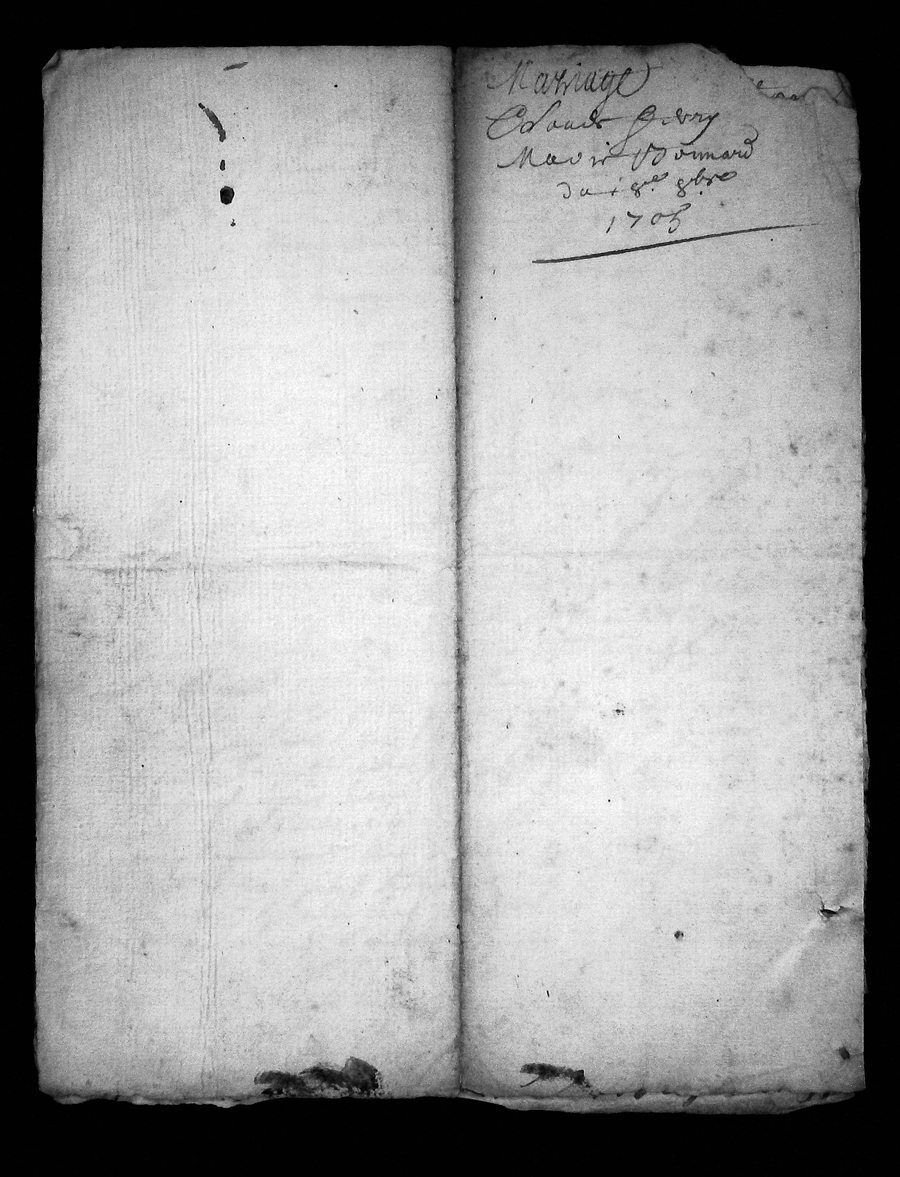 Mariage
Claude Gevry
Marie Bonnard
du 18e 8bre
1705